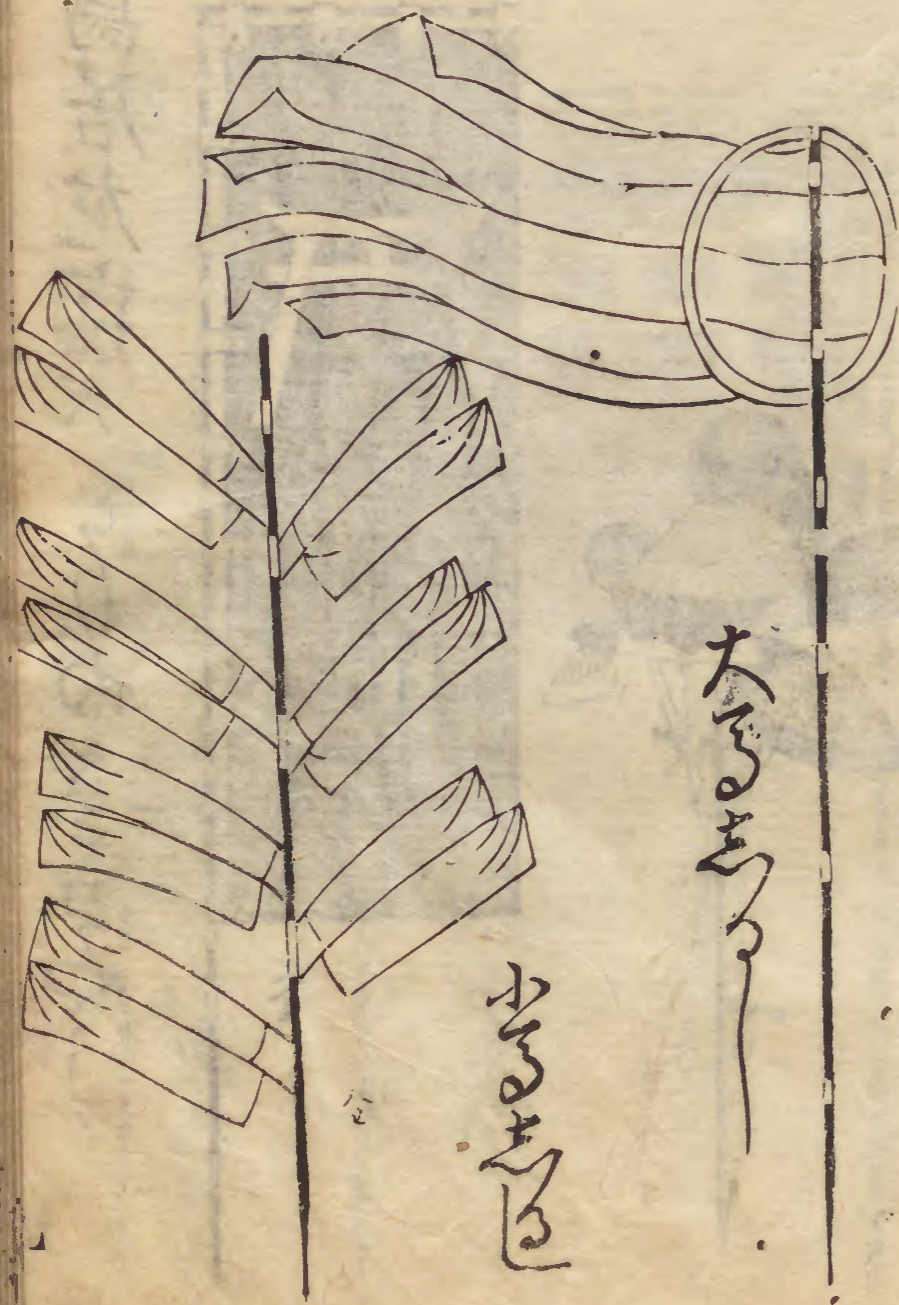 大馬志るし
小馬志るし